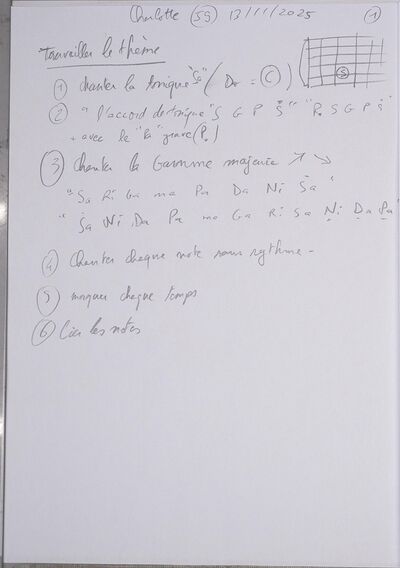 Charlotte (59) 13/11/2025 (1)
Travailler le thème
(1) chanter la tonique "Sa" (Do = (C)) (S)
(2) " l'accord de tonique "S G P Ṡ" "Ṗ S G P Ṡ"
+ avec le "Pa" grave (P̣)
(3) Chanter la Gamme majeure ↗ ↘
"Sa Ri Ga ma Pa Da Ni Ṡa"
"Ṡa Ni Da Pa ma Ga Ri Sa Ṇi Ḍa P̣a"
(4) Chanter chaque note sans rythme -
(5) marquer chaque temps
(6) Lier les notes